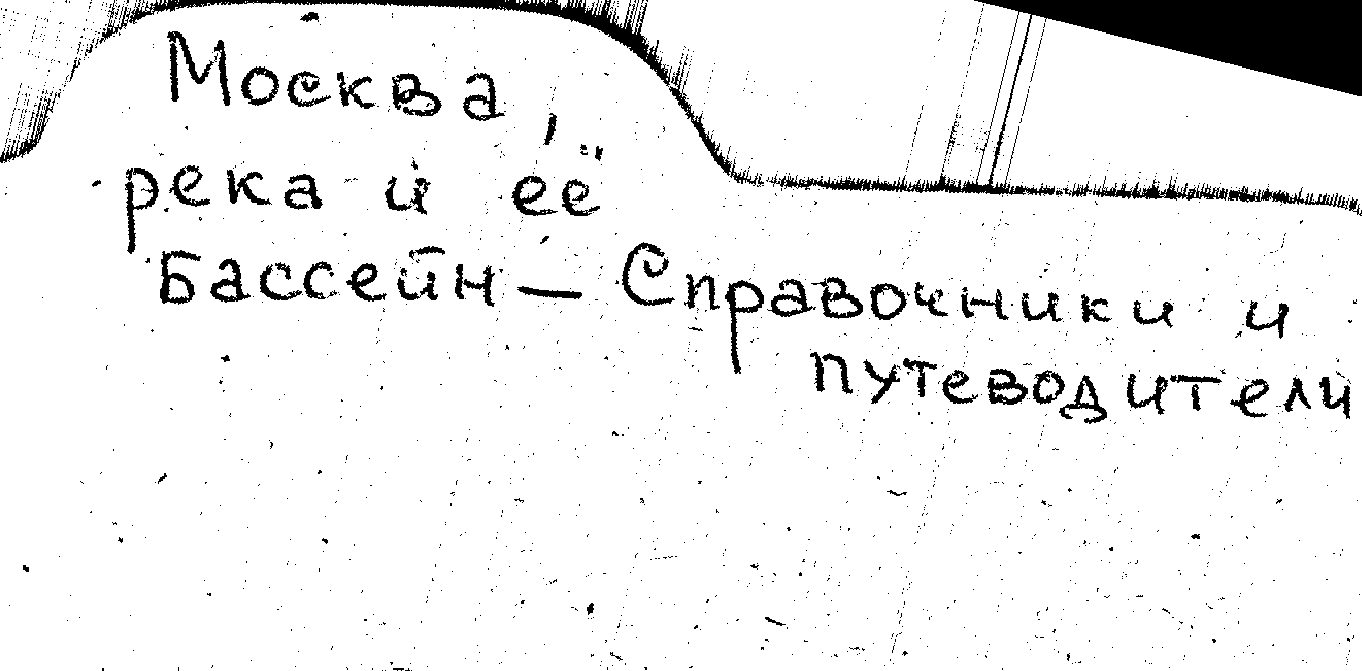 Москва,
река и её
бассейн — Справочники и
путеводители